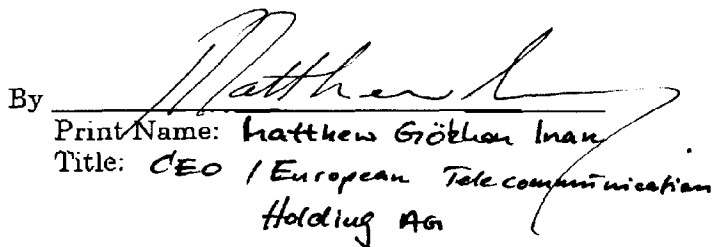 By Matthew
Print Name: Matthew Gökhan Inan
Title: CEO / European Telecommunication
Holding AG